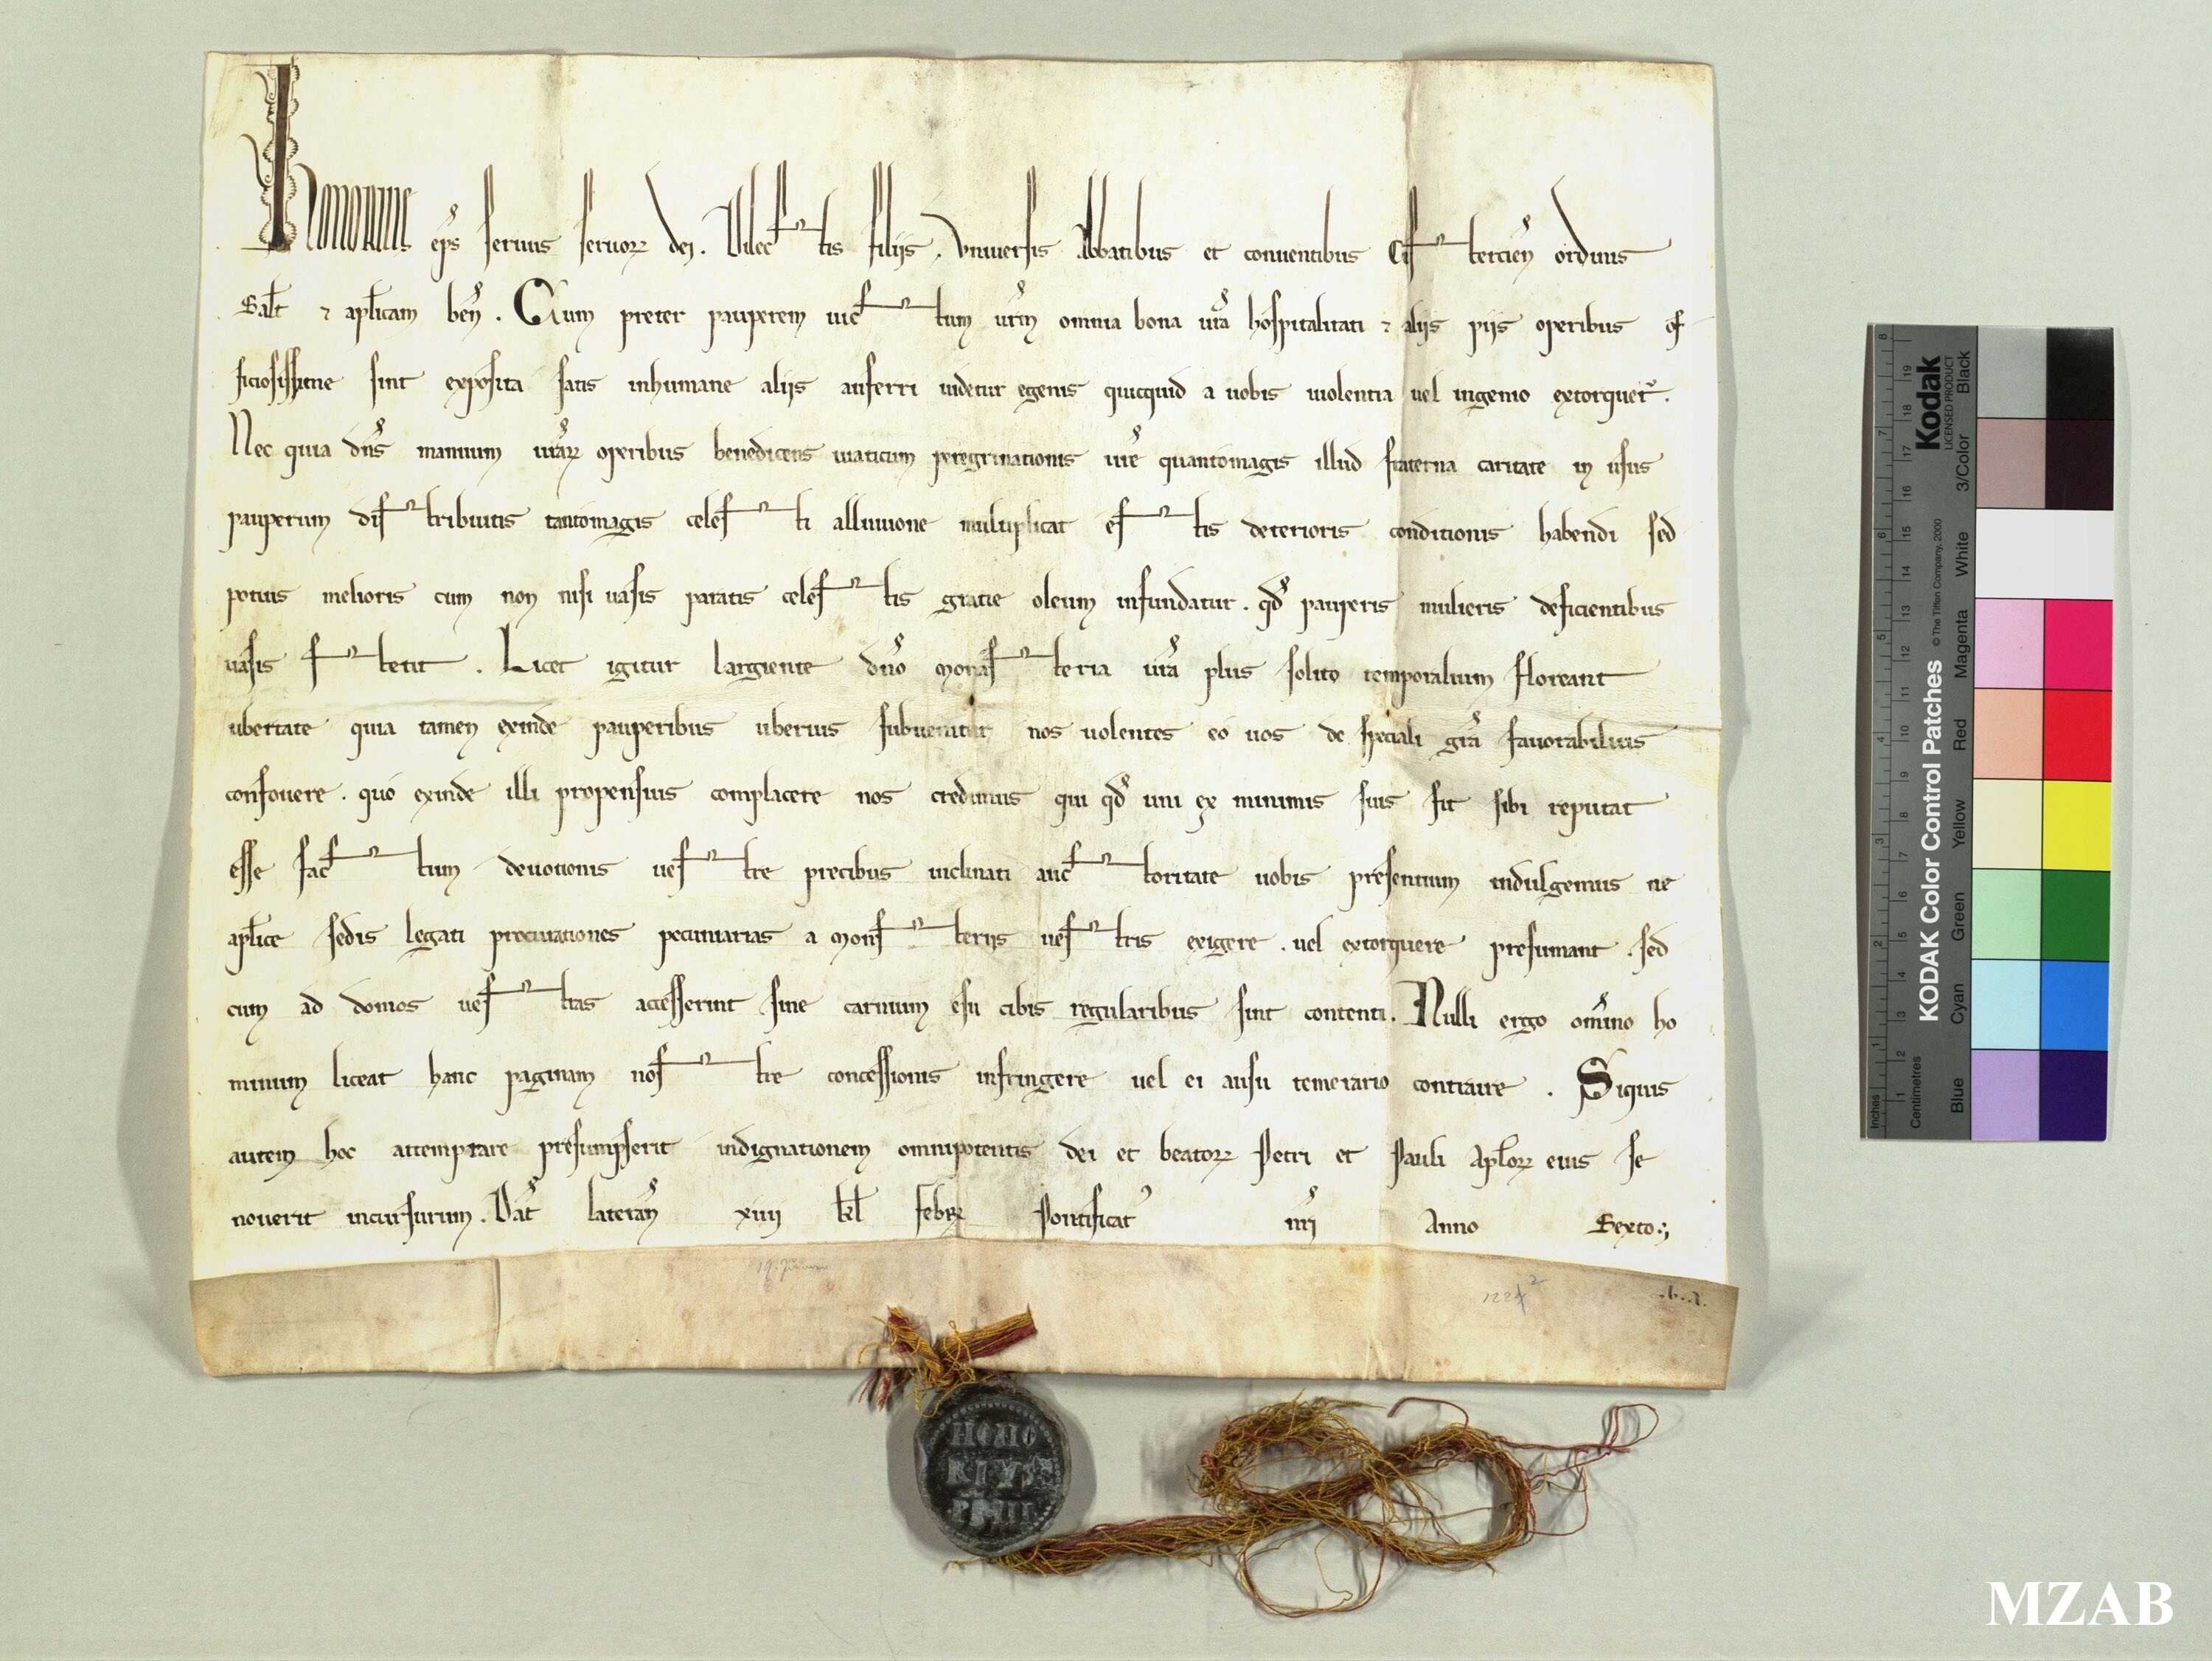 Honorius ep̄s seruus seruoꝝ dei. Dilectis filijs. Vniuersis Abbatibus et conuentibus Cistercien̄ ordinis
Salt̄ ⁊ aplicam ben̄. Cum preter pauperem uictum ur̄m omnia bona ur̄a hospitalitati ⁊ alijs pijs operibus of
ficiosissime sint exposita satis inhumane alijs auferri uidetur egenis quicquid a uobis uiolentia uel ingenio extorquet᷑.
Nec quia dn̄s manuum ur̄aꝝ operibus benedicens uiaticum peregrinationis ur̄e quantomagis illud fraterna caritate in usus
pauperum distribuitis tantomagis celesti alluuione multiplicat estis deterioris conditionis habendi sed
potius melioris cum non nisi uasis paratis celestis gratie oleum infundatur. qd̄ pauperis mulieris deficientibus
uasis stetit. Licet igitur largiente dn̄o monasteria ur̄a plus solito temporalium floreant
ubertate quia tamen exinde pauperibus uberius subuenitur nos uolentes eo uos de speciali gr̄a fauorabilius
confouere. quo exinde illi propensius complacere nos credimus qui qd̄ uni ex minimis suis fit sibi reputat
esse factum deuotionis uestre precibus inclinati auctoritate uobis presentium indulgemus ne
aplice sedis legati procurationes pecuniarias a monsterijs uestris exigere. uel extorquere presumant. sed
cum ad domos uestras accesserint sine carnium esu cibis regularibus sint contenti. Nulli ergo om̄ino ho
minum liceat hanc paginam nostre concessionis infringere uel ei ausu temerario contraire. Siquis
autem hoc attemptare presumpserit indignationem omnipotentis dei et beatoꝝ Petri et Pauli Apl̄oꝝ eius se
nouerit incursurum. Dat̄ lateran̄ xiiij kl̄ febrꝝ Pontificat᷒ nr̄i Anno Sexto:;
19. Jänner
122
.b.a.
HONO
RIVS
PP III
Inches
Centimetres
KODAK Color Control Patches
© The Tiffen Company, 2000
Kodak
LICENSED PRODUCT
Blue Cyan Green Yellow Red Magenta White 3/Color Black
MZAB